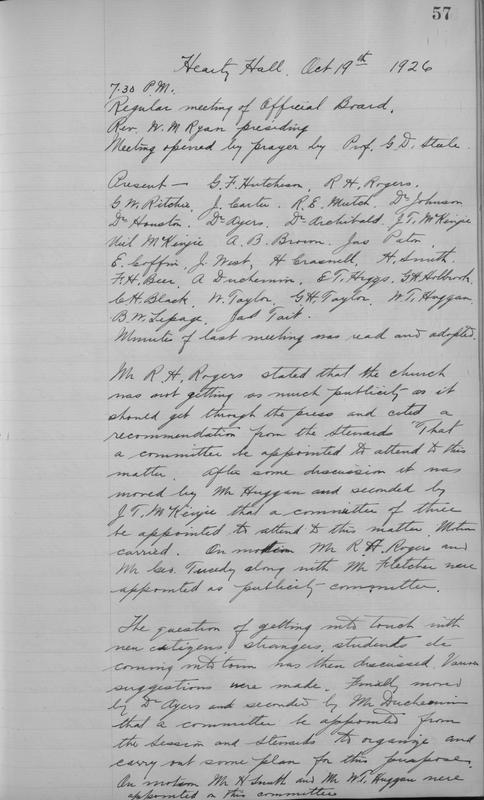 57
Hearty Hall, Oct 19th 1926
7.30 P.M.
Regular meeting of Official Board.
Rev. W. M Ryan presiding
Meeting opened by prayer by Prof. G. D. Steele.
Present — G. F. Hutcheson, R. H. Rogers,
G. W. Ritchie, J. Carter. R. E. Mutch. Dr Johnson
Dr Houston. Dr Ayers, Dr Archibald. J. T. McKenzie
Neil McKenzie A. B. Brown. Jas Paton,
E. Coffin, J. West, H Craswell, H. Smith.
F. H. Beer, A Duchemin, E. T. Higgs, G. H. Holbrook,
C. H. Black, W. Taylor, G. H. Taylor, W. T. Huggan,
B. W. Lepage, Jas Tait.
Minutes of last meeting was read and adopted.
Mr R. H. Rogers stated that the church
was not getting as much publicity as it
should get through the press and cited a
recommendation from the Stewards "That
a committee be appointed to attend to this
matter. After some discussion it was
moved by Mr Huggan and seconded by
J. T. McKenzie that a committee of three
be appointed to attend to this matter. Motion
carried. On motion Mr R. H. Rogers and
Mr Geo. Tweedy along with Mr Fletcher were
appointed as publicity committee.
The question of getting into touch with
new citizens, strangers, students etc
coming into town was then discussed. Various
suggestions were made. Finally moved
by Dr Ayers and seconded by Mr Duchemin
that a committee be appointed from
the Session and Stewards to organize and
carry out some plan for this purpose.
On motion Mr H Smith and Mr W. T. Huggan were
appointed on this committee